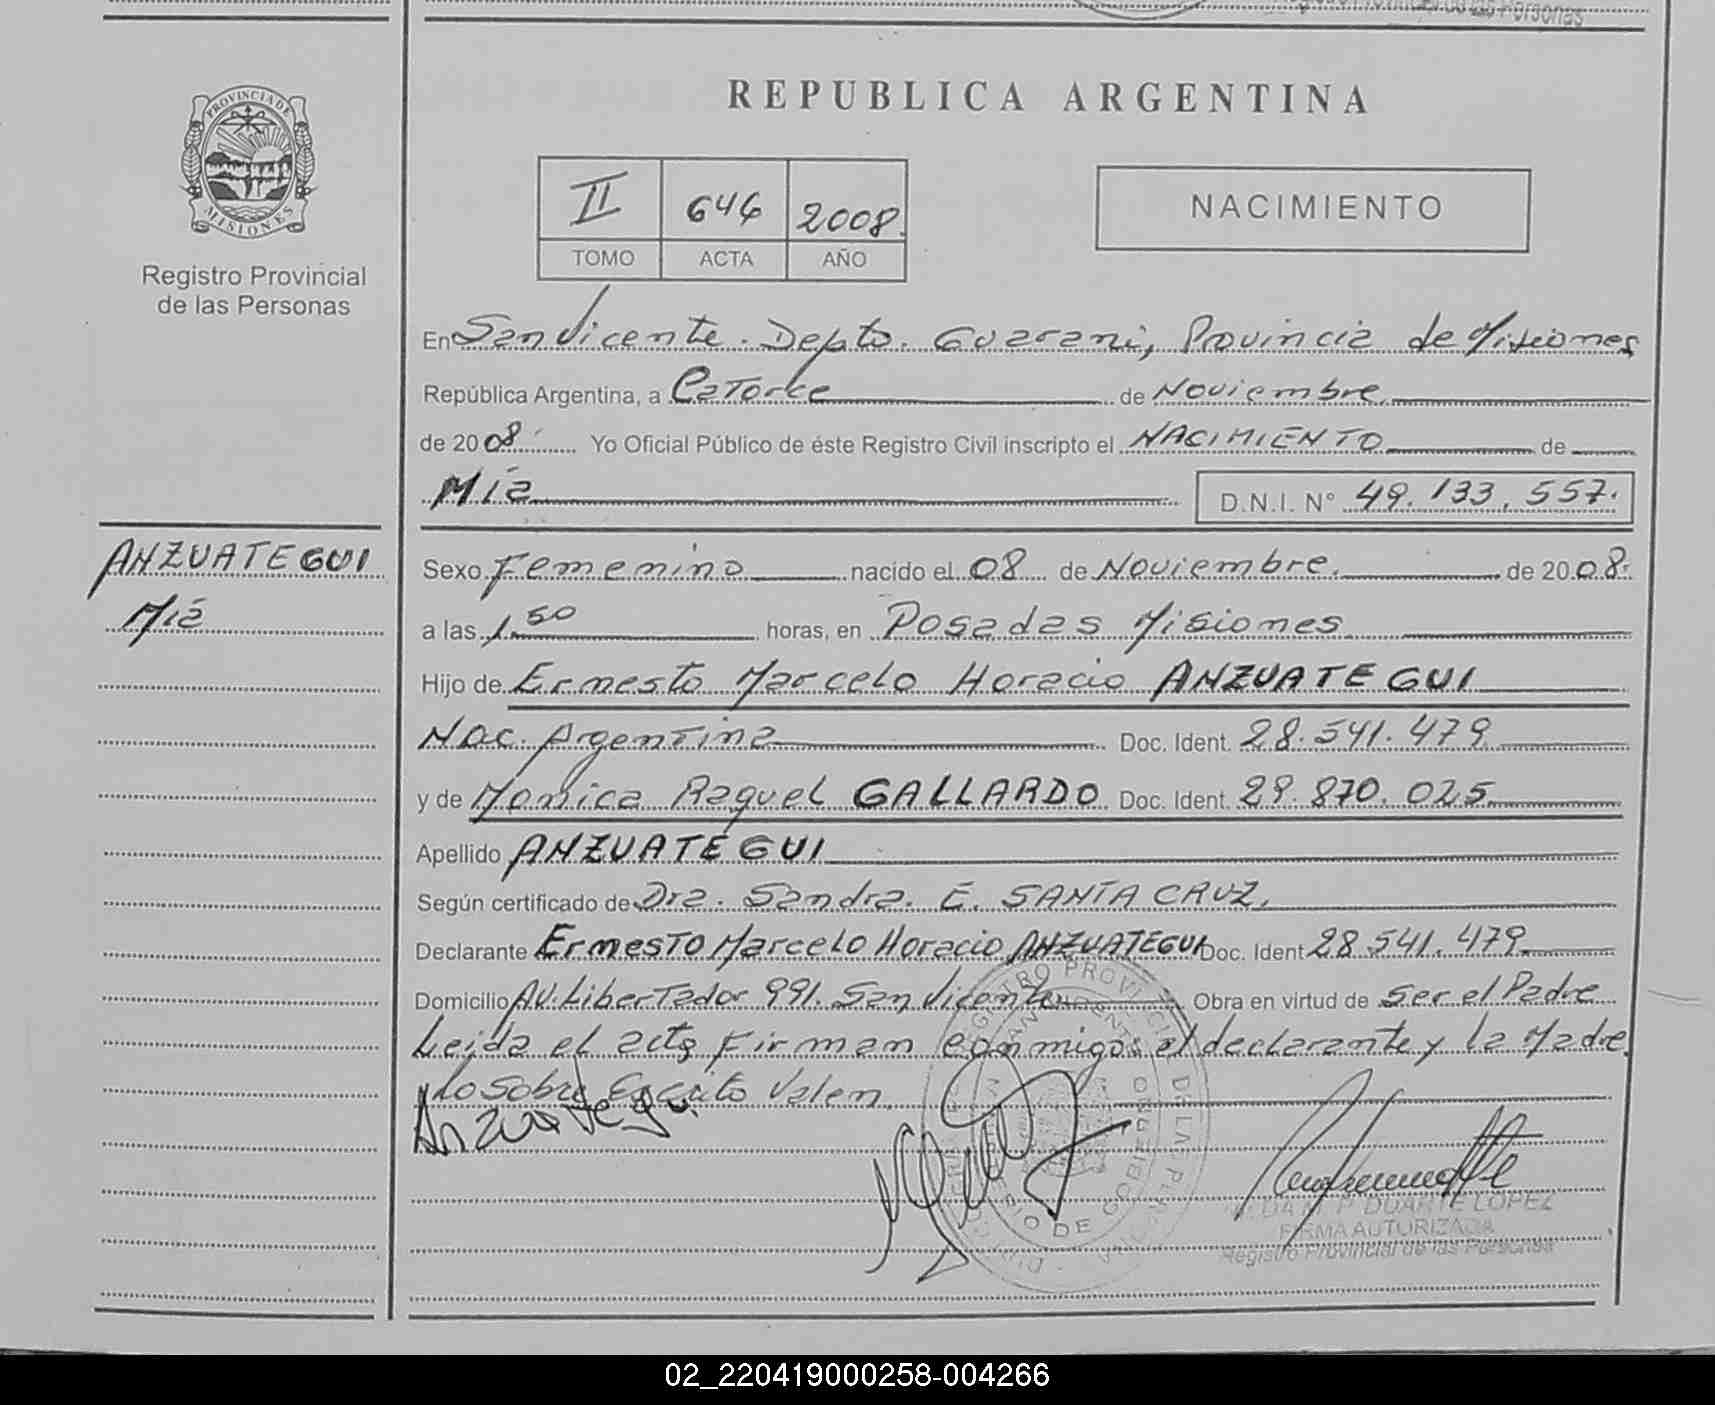 Registro Provincial de las Personas
REPUBLICA ARGENTINA
PROVINCIA DE
MISIONES
Registro Provincial
de las Personas
II 646 2008.
TOMO ACTA AÑO
NACIMIENTO
En San Vicente. Depto. Guarani, Provincia de Misiones
República Argentina, a Catorce de Noviembre.
de 2008. Yo Oficial Público de éste Registro Civil inscripto el NACIMIENTO de
Mía D.N.I. N° 49.133.557.
ANZUATEGUI
Mía
Sexo Femenino nacido el 08 de Noviembre. de 2008.
a las 1.50 horas, en Posadas Misiones
Hijo de Ernesto Marcelo Horacio ANZUATEGUI
Nac. Argentina Doc. Ident. 28.541.479
y de Monica Raquel GALLARDO Doc. Ident. 29.870.025
Apellido ANZUATEGUI
Según certificado de Dra. Sandra. E. SANTA CRUZ.
Declarante Ernesto Marcelo Horacio ANZUATEGUI Doc. Ident 28.541.479
Domicilio AV. Libertador 991. San Vicente Obra en virtud de ser el Padre
Leida el acta Firman conmigo el declarante y la Madre
Lo Sobre Escrito Valen.
Anzuategui
DUARTE LOPEZ
FIRMA AUTORIZADA
Registro Provincial de las Personas
02_220419000258-004266